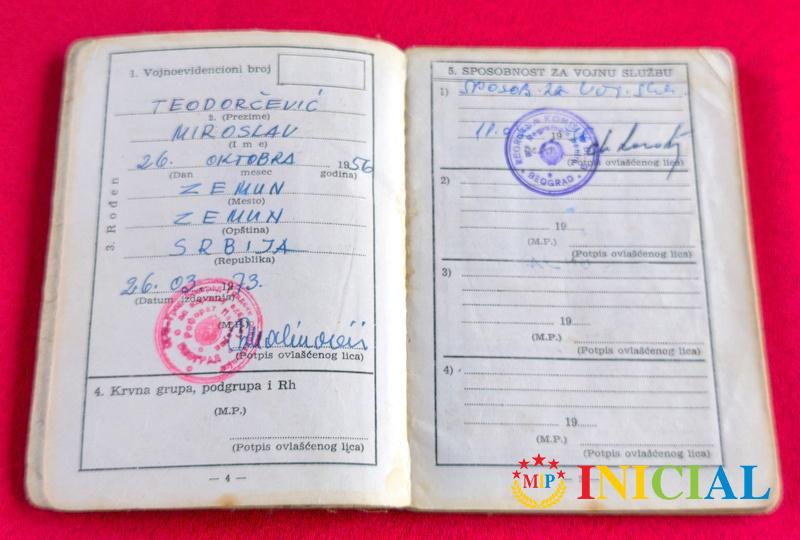 1. Vojnoevidencioni broj
TEODORČEVIĆ
2. (Prezime)
MIROSLAV
(Ime)
26. OKTOBRA 1956
(Dan mesec godina)
ZEMUN
(Mesto)
ZEMUN
(Opština)
SRBIJA
(Republika)
3. Rođen
26. 03. 1973.
(Datum izdavanja)
(M.P.)
(Potpis ovlašćenog lica)
4. Krvna grupa, podgrupa i Rh
(M.P.)
(Potpis ovlašćenog lica)
— 4 —
5. SPOSOBNOST ZA VOJNU SLUŽBU
1) SPOSOB. za
19
BEOGRAD
(Potpis ovlašćenog lica)
2)
19
(M.P.)
(Potpis ovlašćenog lica)
3)
19
(M.P.)
(Potpis ovlašćenog lica)
4)
19
(M.P.)
(Potpis ovlašćenog lica)
MIP INICIAL